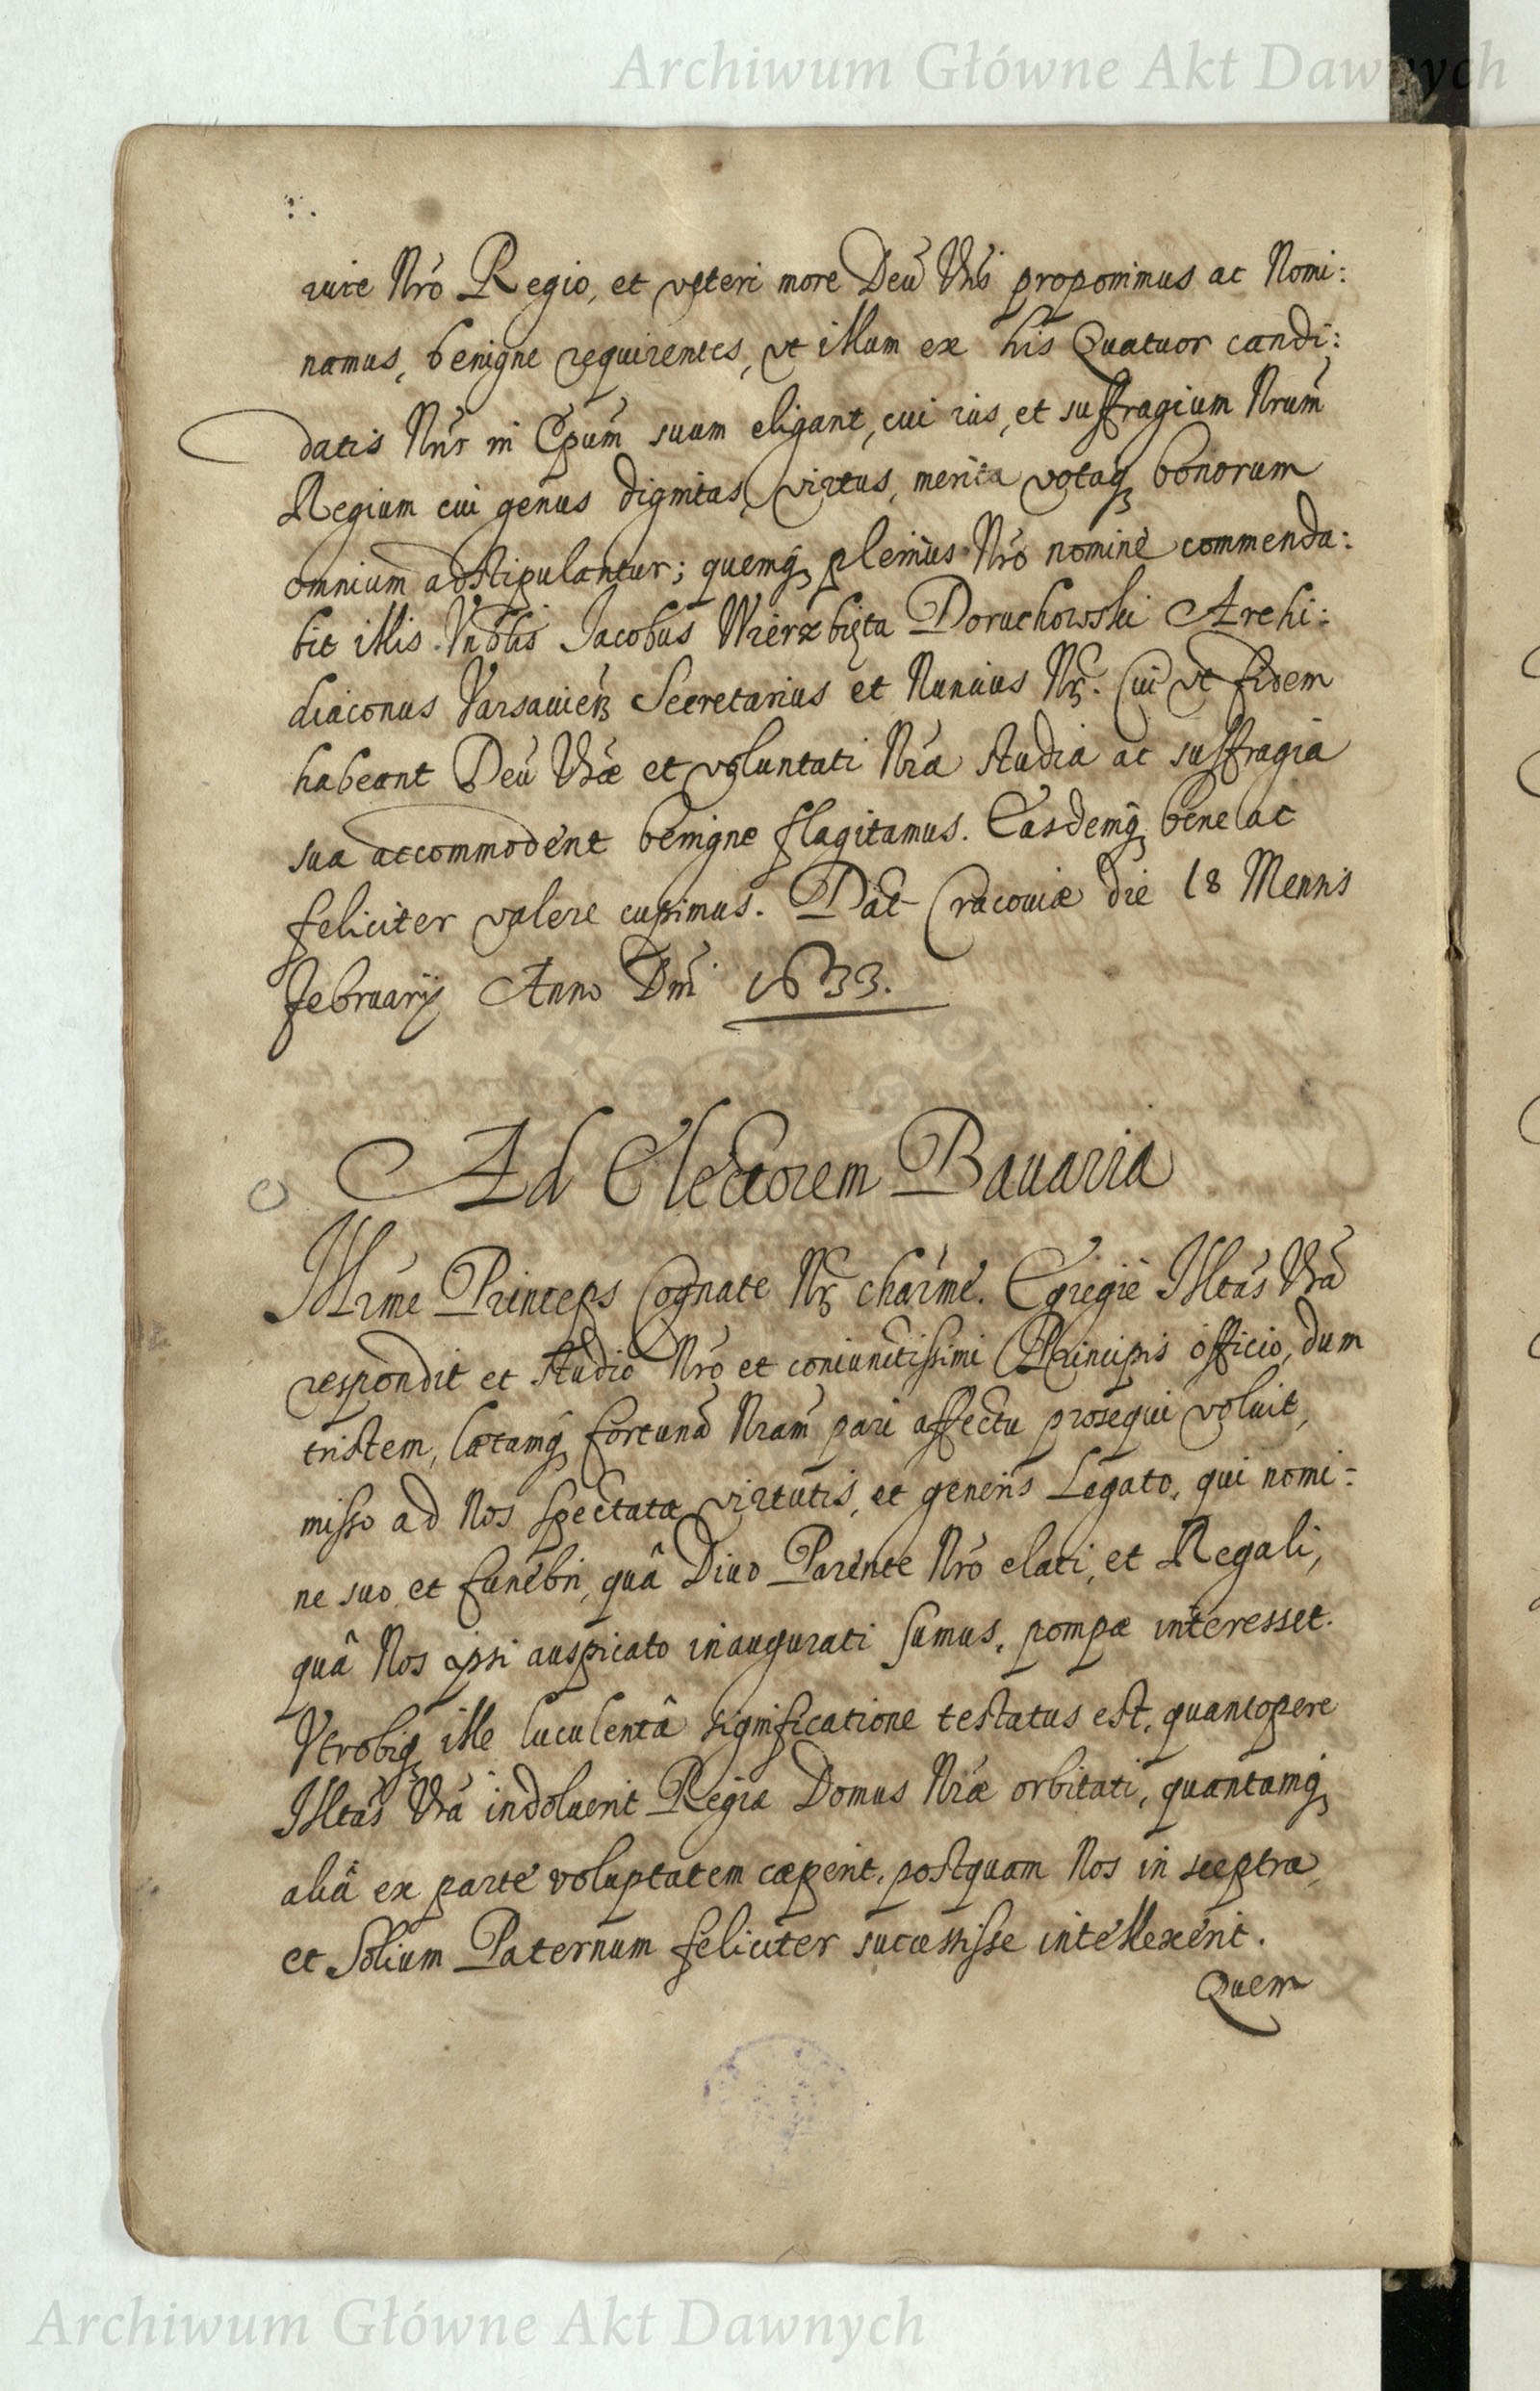 Archiwum Główne Akt Dawnych
iure Nro Regio, et veteri more Deu Vris proponimus ac Nomi:
namus, benigne requirentes, vt illum ex his Quatuor candi:
datis Nris in Epum suum eligant, cui ius, et suffragium Nrum
Regium cui genus dignitas, virtus, merita votaq bonorum
omnium adstipulantur; quemq plenius Nro nomine commenda:
bit illis Vnblis Jacobus Wierzbięta Doruchowski Archi:
diaconus Varsavien Secretarius et Nuncius Nr. Cui vt fidem
habeant Deu Vræ et voluntati Nra studia ac suffragia
sua accommodent benigne flagitamus. Easdemq bene ac
feliciter valere cupimus. Dat Cracoviæ die 18 Mensis
februarij Anno Dni 1633.
Ad Electorem Bavaria
Illrme Princeps Cognate Nr charme. Egregie Illtas Vra
respondit et studio Nro et coniunctissimi Principis officio, dum
tristem, lætamq fortuna Nram pari affectu prosequi voluit,
misso ad Nos spectatæ virtutis, et generis Legato, qui nomi:
ne suo et funebri, quâ Divo Parente Nro elati, et Regali,
quâ Nos ipsi auspicato inaugurati sumus, pompæ interesset.
Vtrobiq ille luculentâ significatione testatus est, quantopere
Illtas Vra indoluerit Regia Domus Nræ orbitati, quantamq
aliâ ex parte voluptatem cæperit, postquam Nos in sceptra
et Solium Paternum feliciter successisse intellexerit.
Quem
Archiwum Główne Akt Dawnych